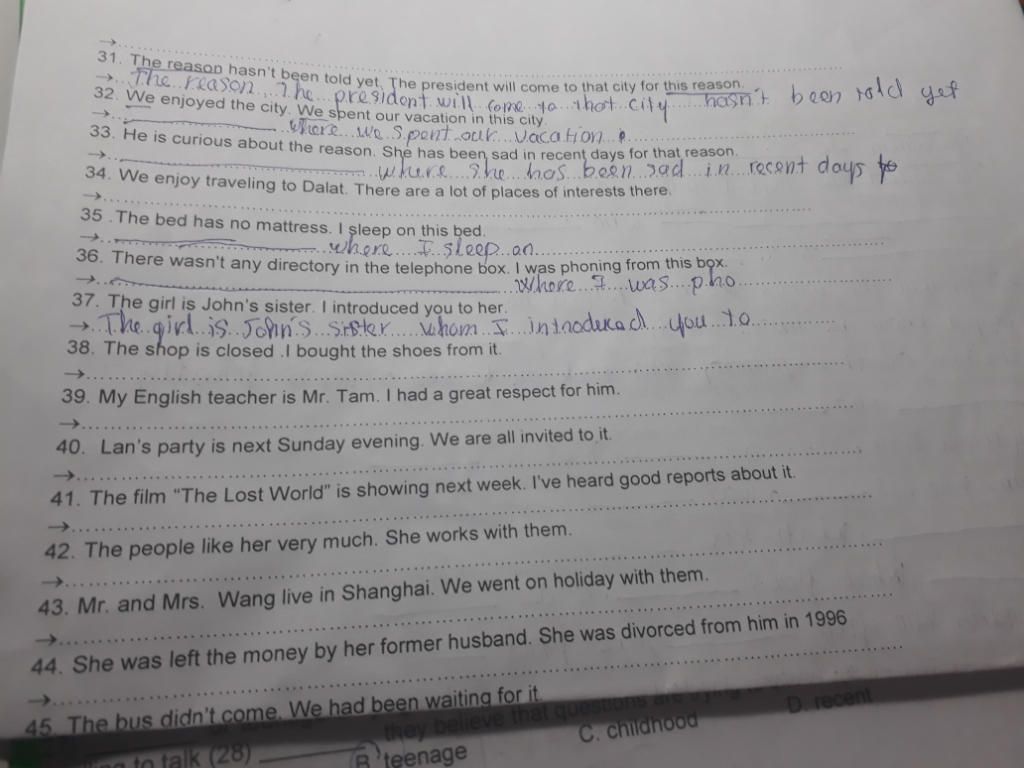 →
31. The reason hasn't been told yet. The president will come to that city for this reason.
→ The reason The president will come to that city hasn't been told yet
32. We enjoyed the city. We spent our vacation in this city.
→ where we spent our vacation
33. He is curious about the reason. She has been sad in recent days for that reason.
→ where she has been sad in recent days
34. We enjoy traveling to Dalat. There are a lot of places of interests there.
→
35 .The bed has no mattress. I sleep on this bed.
→ where I sleep on
36. There wasn't any directory in the telephone box. I was phoning from this box.
→ where I was pho
37. The girl is John's sister. I introduced you to her.
→ The girl is John's sister whom I you to
38. The shop is closed .I bought the shoes from it.
→
39. My English teacher is Mr. Tam. I had a great respect for him.
→
40. Lan's party is next Sunday evening. We are all invited to it.
→
41. The film "The Lost World" is showing next week. I've heard good reports about it.
→
42. The people like her very much. She works with them.
→
43. Mr. and Mrs. Wang live in Shanghai. We went on holiday with them.
→
44. She was left the money by her former husband. She was divorced from him in 1996
→
45. The bus didn't come. We had been waiting for it
they believe that questions are
to talk (28) B teenage C. childhood D. recent